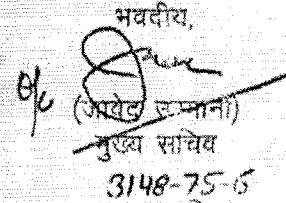 भवदीय,
o/c
(जावेद उस्मानी)
मुख्य सचिव
3148-75-5